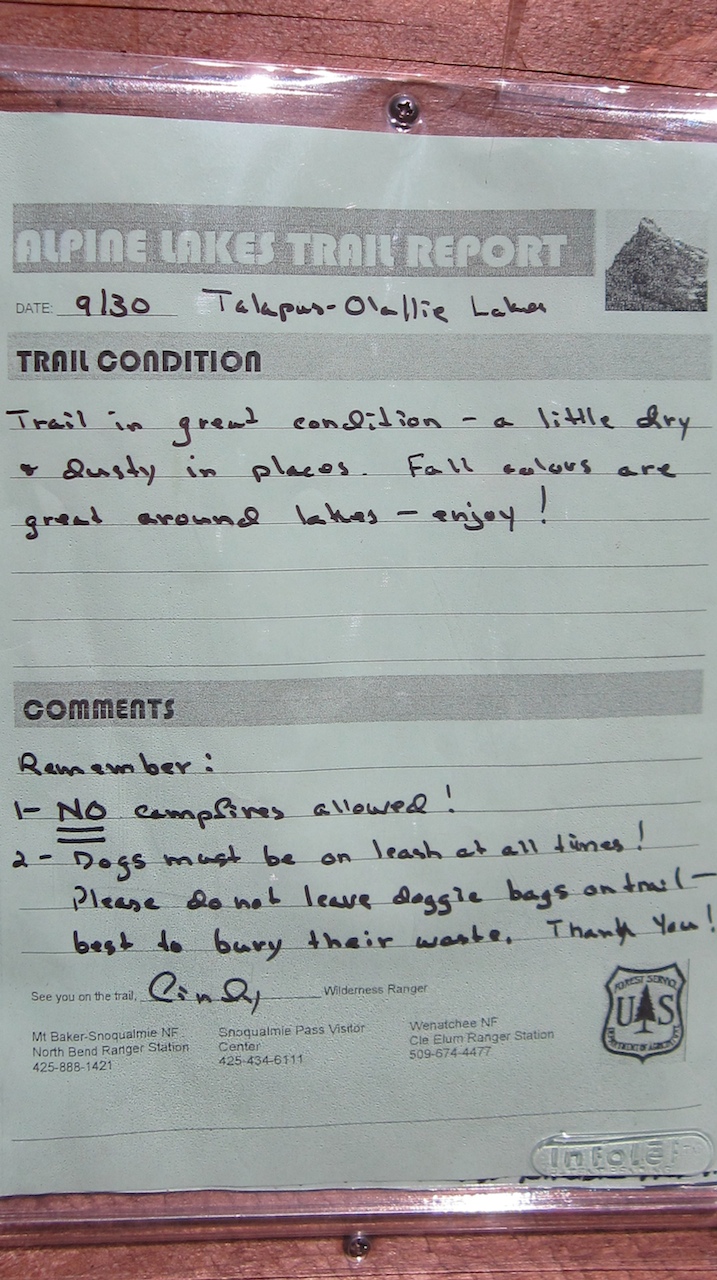 ALPINE LAKES TRAIL REPORT
DATE: 9/30 Talapus-Olallie Lakes
TRAIL CONDITION
Trail in great condition - a little dry
& dusty in places. Fall colors are
great around lakes - enjoy!
COMMENTS
Remember:
1- NO campfires allowed!
2- Dogs must be on leash at all times!
Please do not leave doggie bags on trail -
best to bury their waste. Thank You!
See you on the trail, Cindy Wilderness Ranger
FOREST SERVICE
US
DEPARTMENT OF AGRICULTURE
Mt Baker-Snoqualmie NF
North Bend Ranger Station
425-888-1421
Snoqualmie Pass Visitor
Center
425-434-6111
Wenatchee NF
Cle Elum Ranger Station
509-674-4477